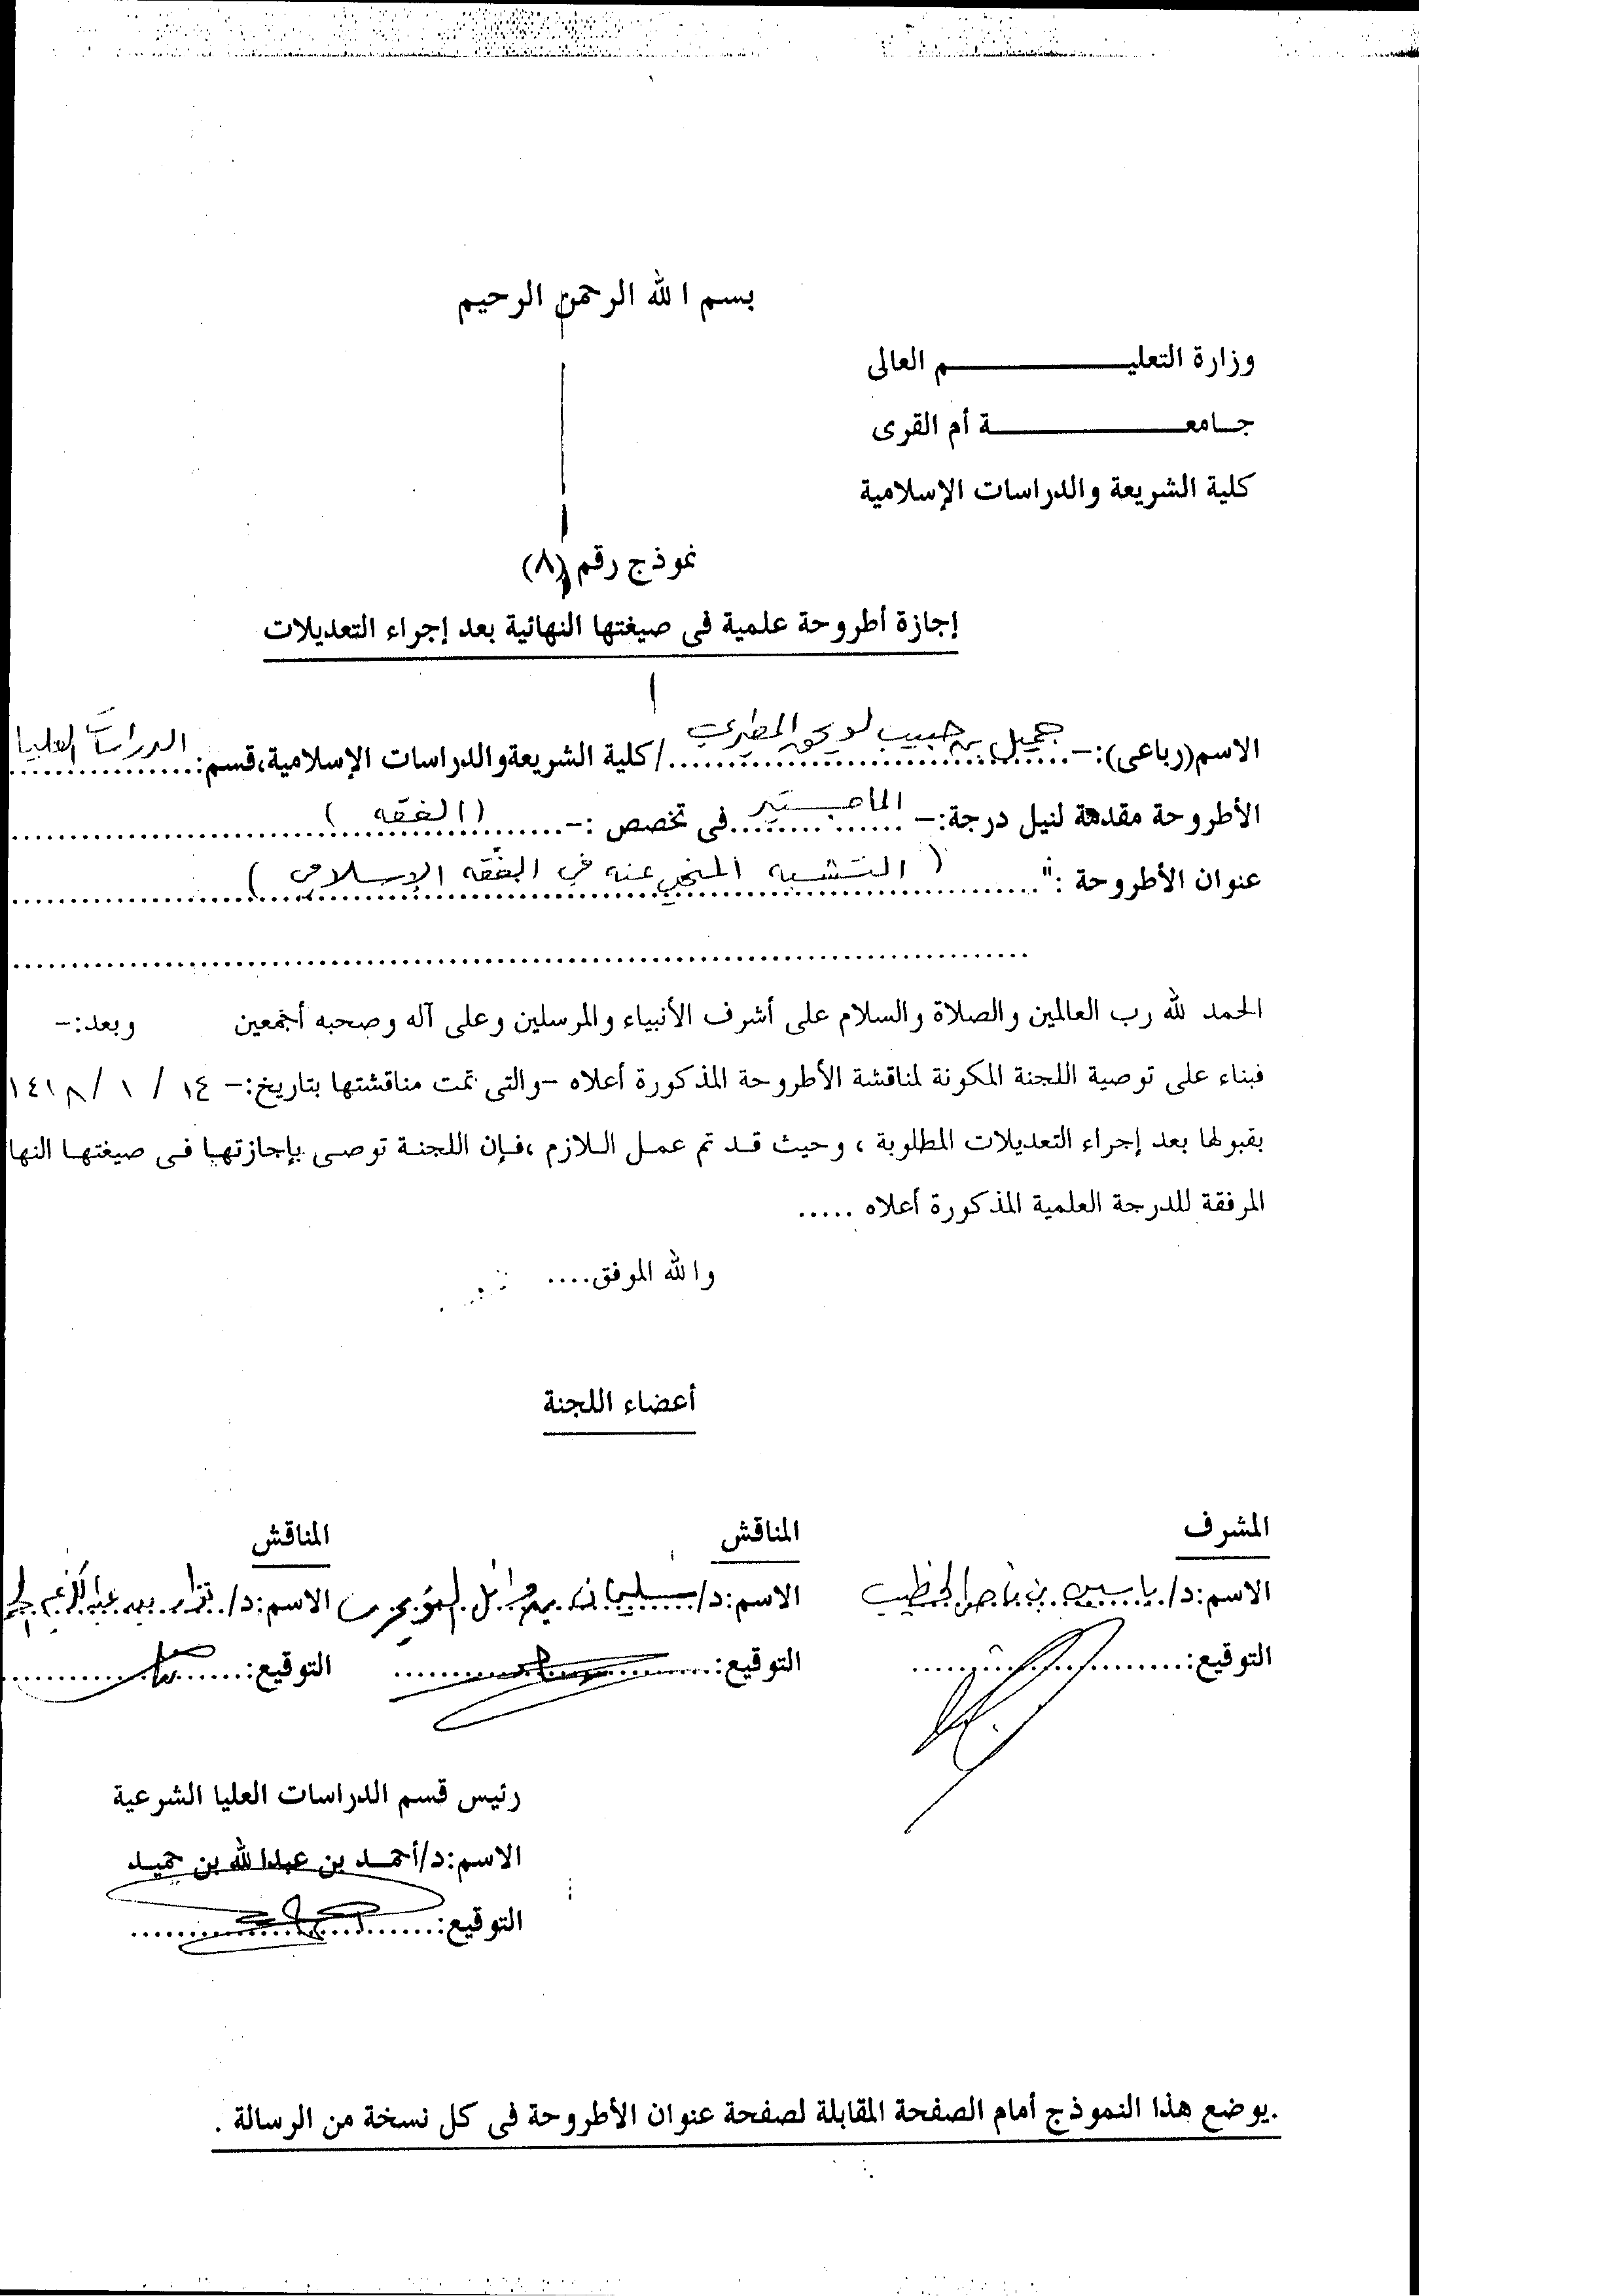 بسم الله الرحمن الرحيم
وزارة التعليم العالى
جامعة أم القرى
كلية الشريعة والدراسات الإسلامية
نموذج رقم (٨)
إجازة أطروحة علمية فى صيغتها النهائية بعد إجراء التعديلات
الاسم(رباعى):- جميل بن حبيب لويحق المطيري /كلية الشريعة والدراسات الإسلامية،قسم: الدراسات العليا
الأطروحة مقدمة لنيل درجة:- الماجستير فى تخصص :- (الفقه)
عنوان الأطروحة :" (التشبه المنهي عنه في الفقه الإسلامي)
الحمد لله رب العالمين والصلاة والسلام على أشرف الأنبياء والمرسلين وعلى آله وصحبه أجمعين وبعد:-
فبناء على توصية اللجنة المكونة لمناقشة الأطروحة المذكورة أعلاه -والتى تمت مناقشتها بتاريخ:- ١٤ / ١ / ١٤١٨
بقبولها بعد إجراء التعديلات المطلوبة ، وحيث قد تم عمل اللازم ،فإن اللجنة توصى بإجازتها فى صيغتها النها
المرفقة للدرجة العلمية المذكورة أعلاه .....
والله الموفق....
أعضاء اللجنة
المشرف المناقش المناقش
الاسم:د/ ياسين بن ناصر الخطيب الاسم:د/ سليمان بن وائل التويجري الاسم:د/ نزار بن عبدالكريم
التوقيع: التوقيع: التوقيع:
رئيس قسم الدراسات العليا الشرعية
الاسم:د/أحمد بن عبدالله بن حميد
التوقيع:
.يوضع هذا النموذج أمام الصفحة المقابلة لصفحة عنوان الأطروحة فى كل نسخة من الرسالة .